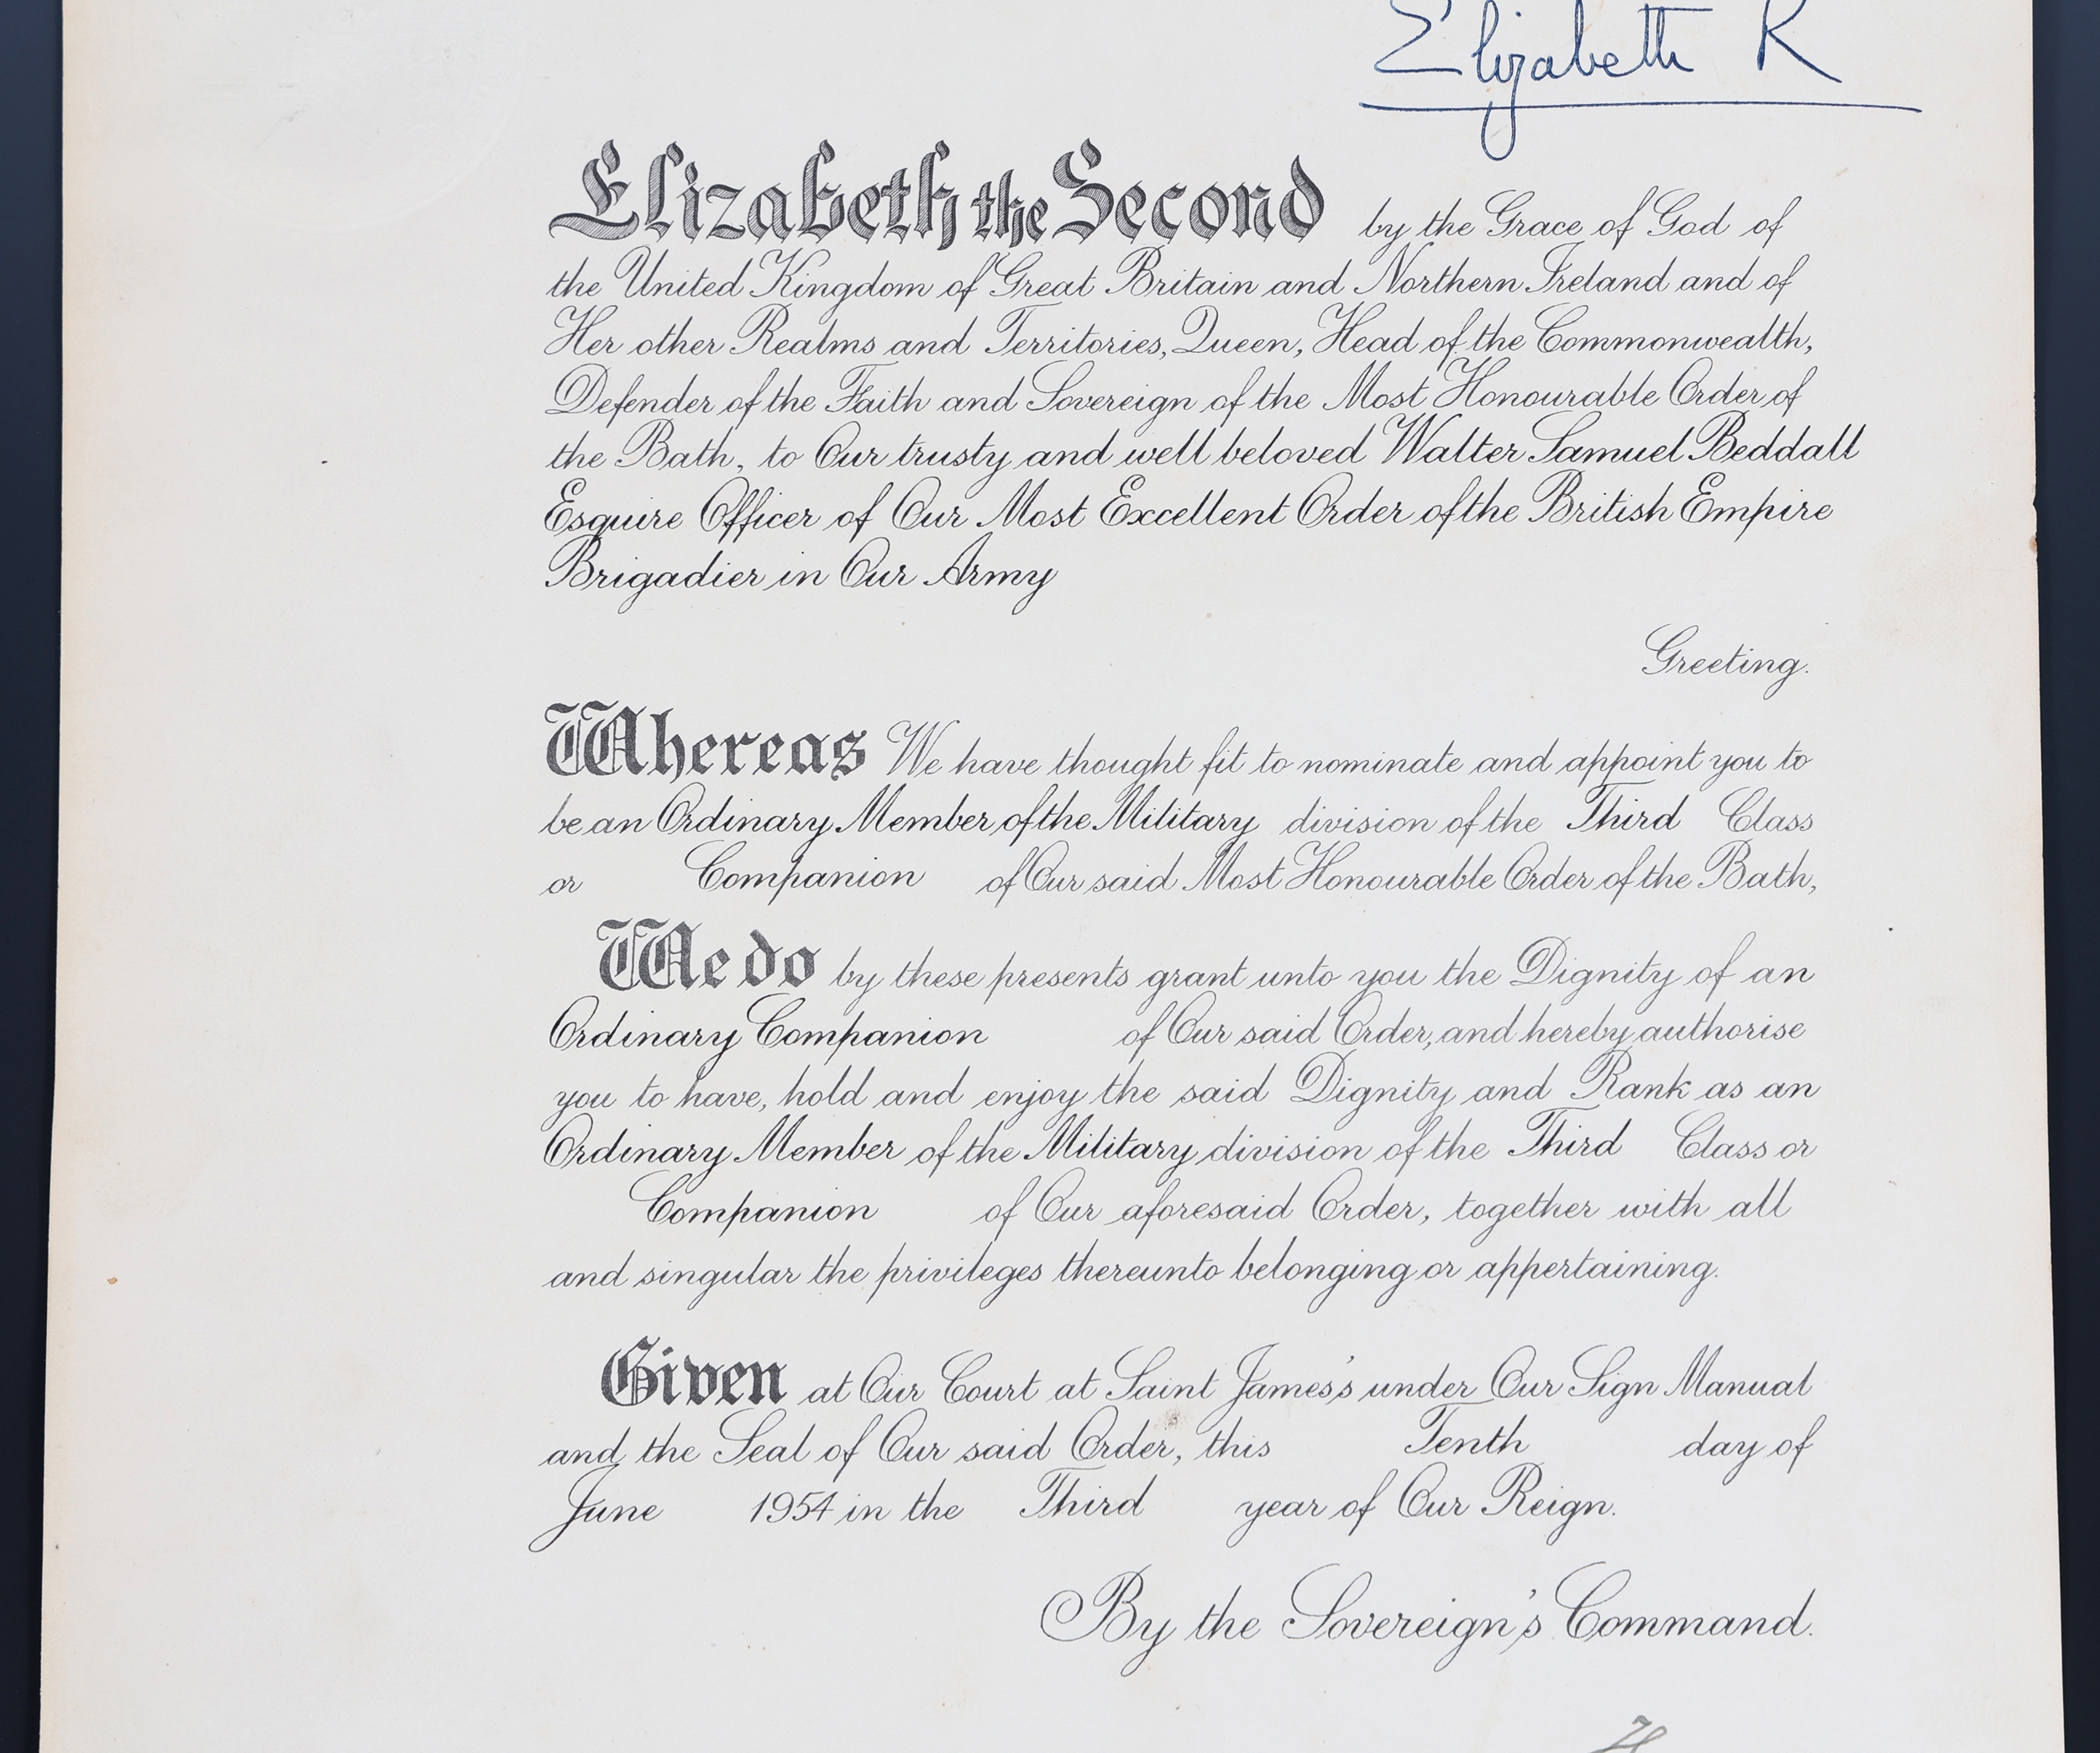 Elizabeth R
Elizabeth the Second by the Grace of God of
the United Kingdom of Great Britain and Northern Ireland and of
Her other Realms and Territories, Queen, Head of the Commonwealth,
Defender of the Faith and Sovereign of the Most Honourable Order of
the Bath, to Our trusty and well beloved Walter Samuel Beddall
Esquire Officer of Our Most Excellent Order of the British Empire
Brigadier in Our Army
Greeting.
Whereas We have thought fit to nominate and appoint you to
be an Ordinary Member of the Military division of the Third Class
or Companion of Our said Most Honourable Order of the Bath,
We do by these presents grant unto you the Dignity of an
Ordinary Companion of Our said Order, and hereby authorise
you to have, hold and enjoy the said Dignity and Rank as an
Ordinary Member of the Military division of the Third Class or
Companion of Our aforesaid Order, together with all
and singular the privileges thereunto belonging or appertaining.
Given at Our Court at Saint James's under Our Sign Manual
and the Seal of Our said Order, this Tenth day of
June 1954 in the Third year of Our Reign.
By the Sovereign's Command.